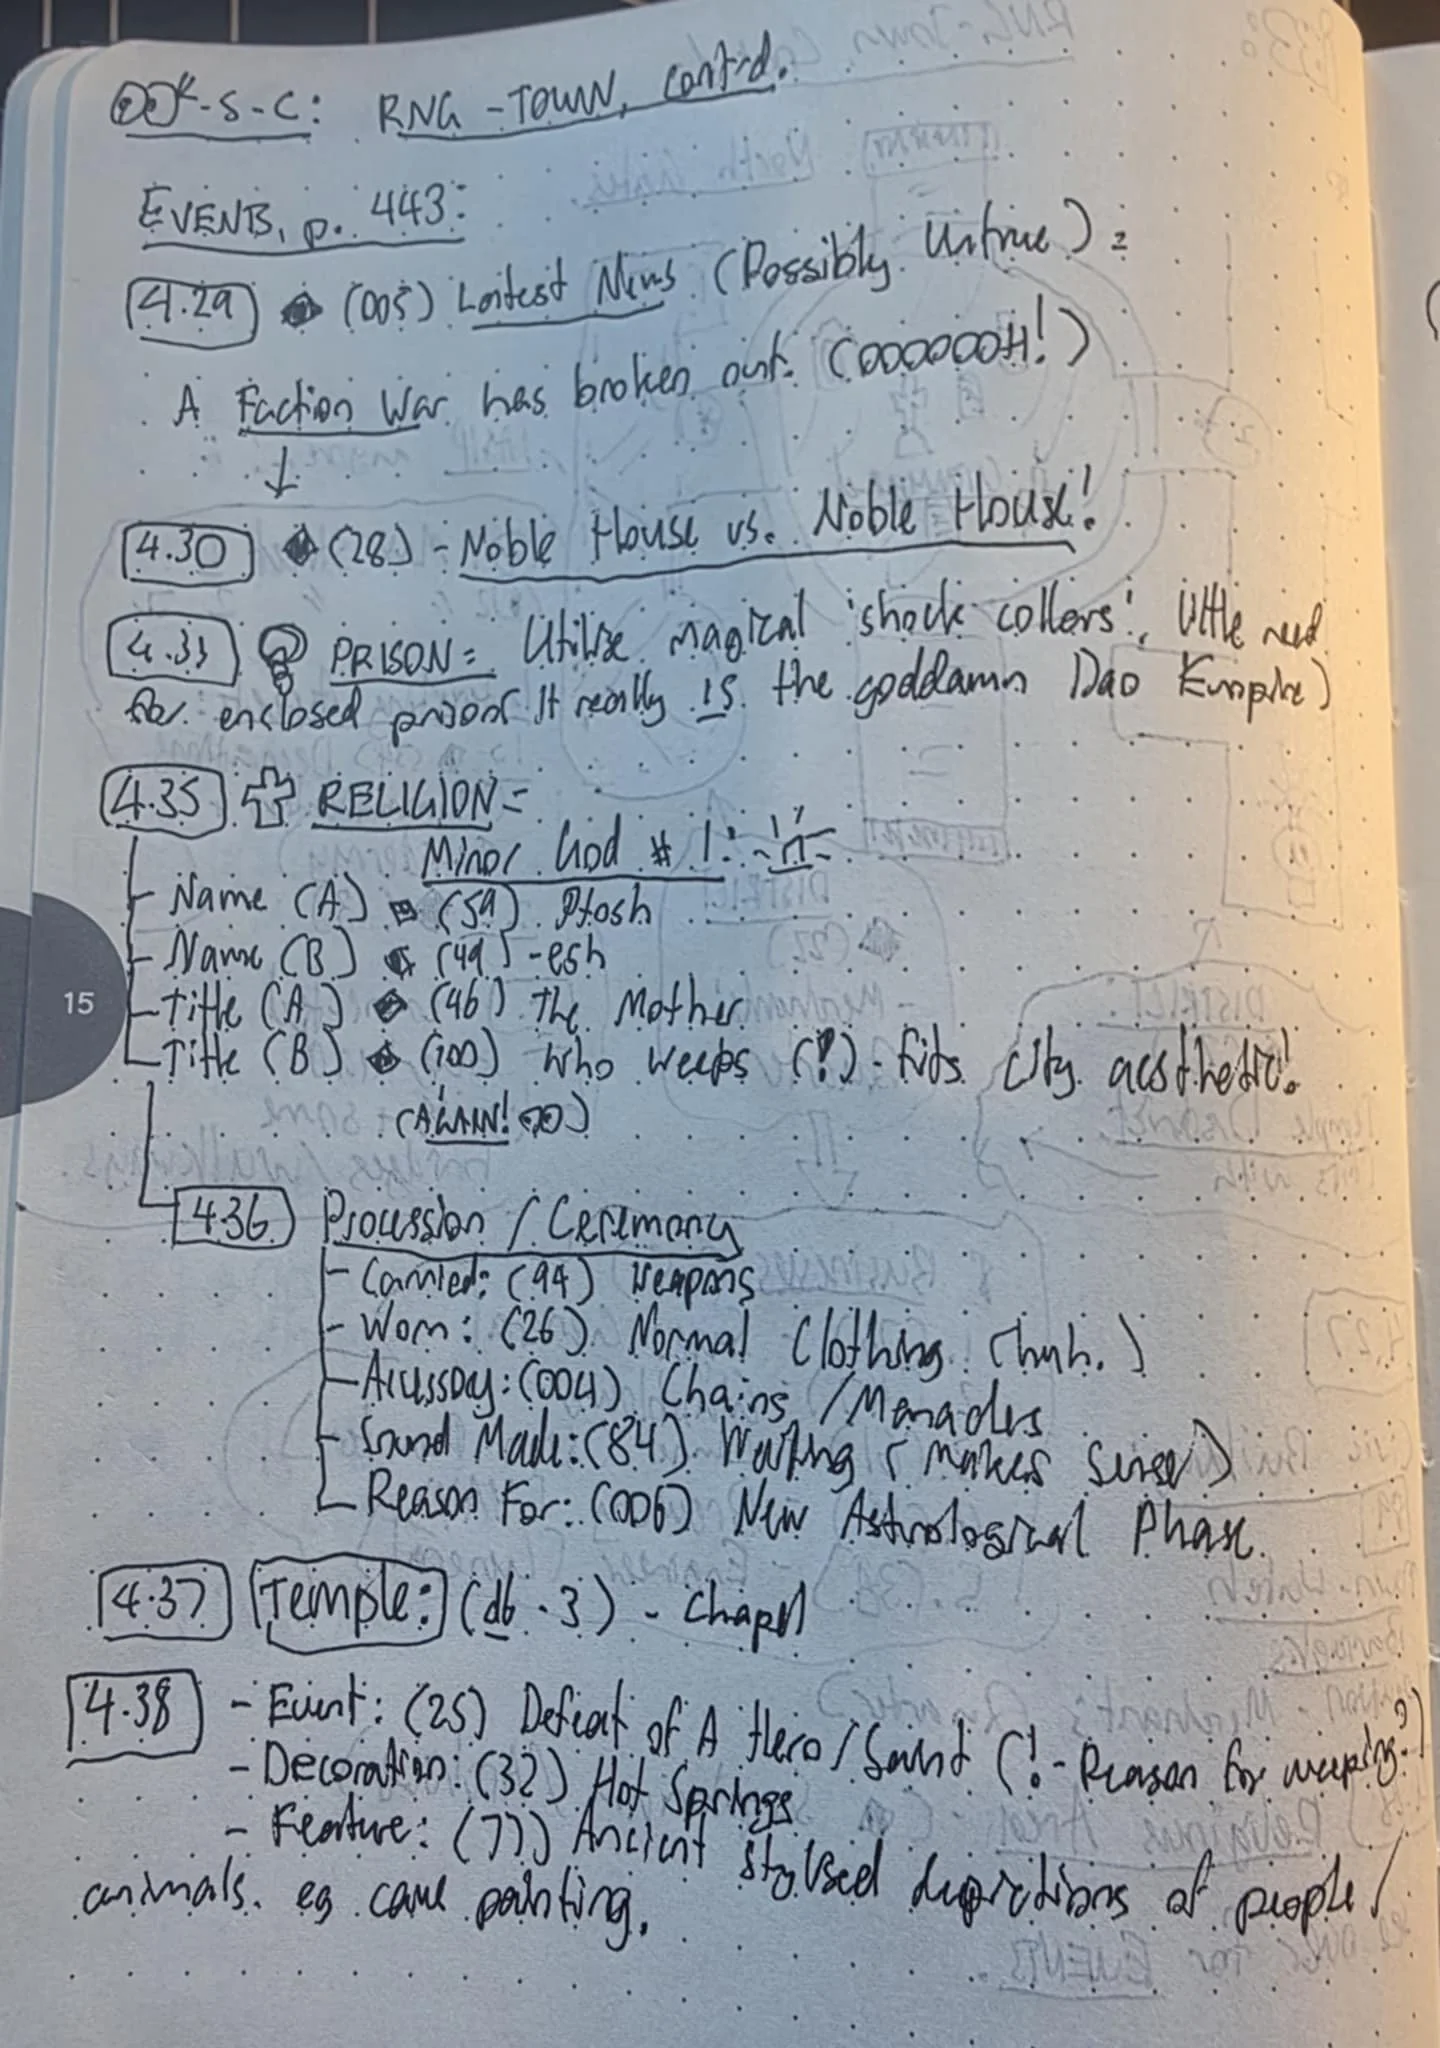 -S-C: RNG-TOWN, contd.
EVENTS, p. 443:
4.29 (005) Latest News (Possibly Untrue):
A Faction War has broken out. (OOOOOOOH!)
4.30 (28) - Noble House vs. Noble House!
4.33 PRISON: Utilise magical 'shock collars', little need
for enclosed prison It really IS the goddamn Dao Empire)
4.35 RELIGION:
Minor God # 1:
- Name (A) (59) Ptosh
- Name (B) (49) -esh
- Title (A) (46) The Mother
- Title (B) (100) Who weeps (!) - fits city aesthetic!
(AGAIN!)
15
4.36 Procession / Ceremony
- Carried: (94) Weapons
- Worn: (26) Normal Clothing (huh.)
- Accessory: (004) Chains / Manacles
- Sound Made: (84) Wailing (makes sense)
- Reason For: (006) New Astrological Phase
4.37 Temple: (d6 - 3) - Chapel
4.38 - Event: (25) Defeat of A Hero/Saint (! - Reason for weeping?)
- Decoration: (32) Hot Springs
- Feature: (77) Ancient stylised depictions of people/
animals. eg cave painting.